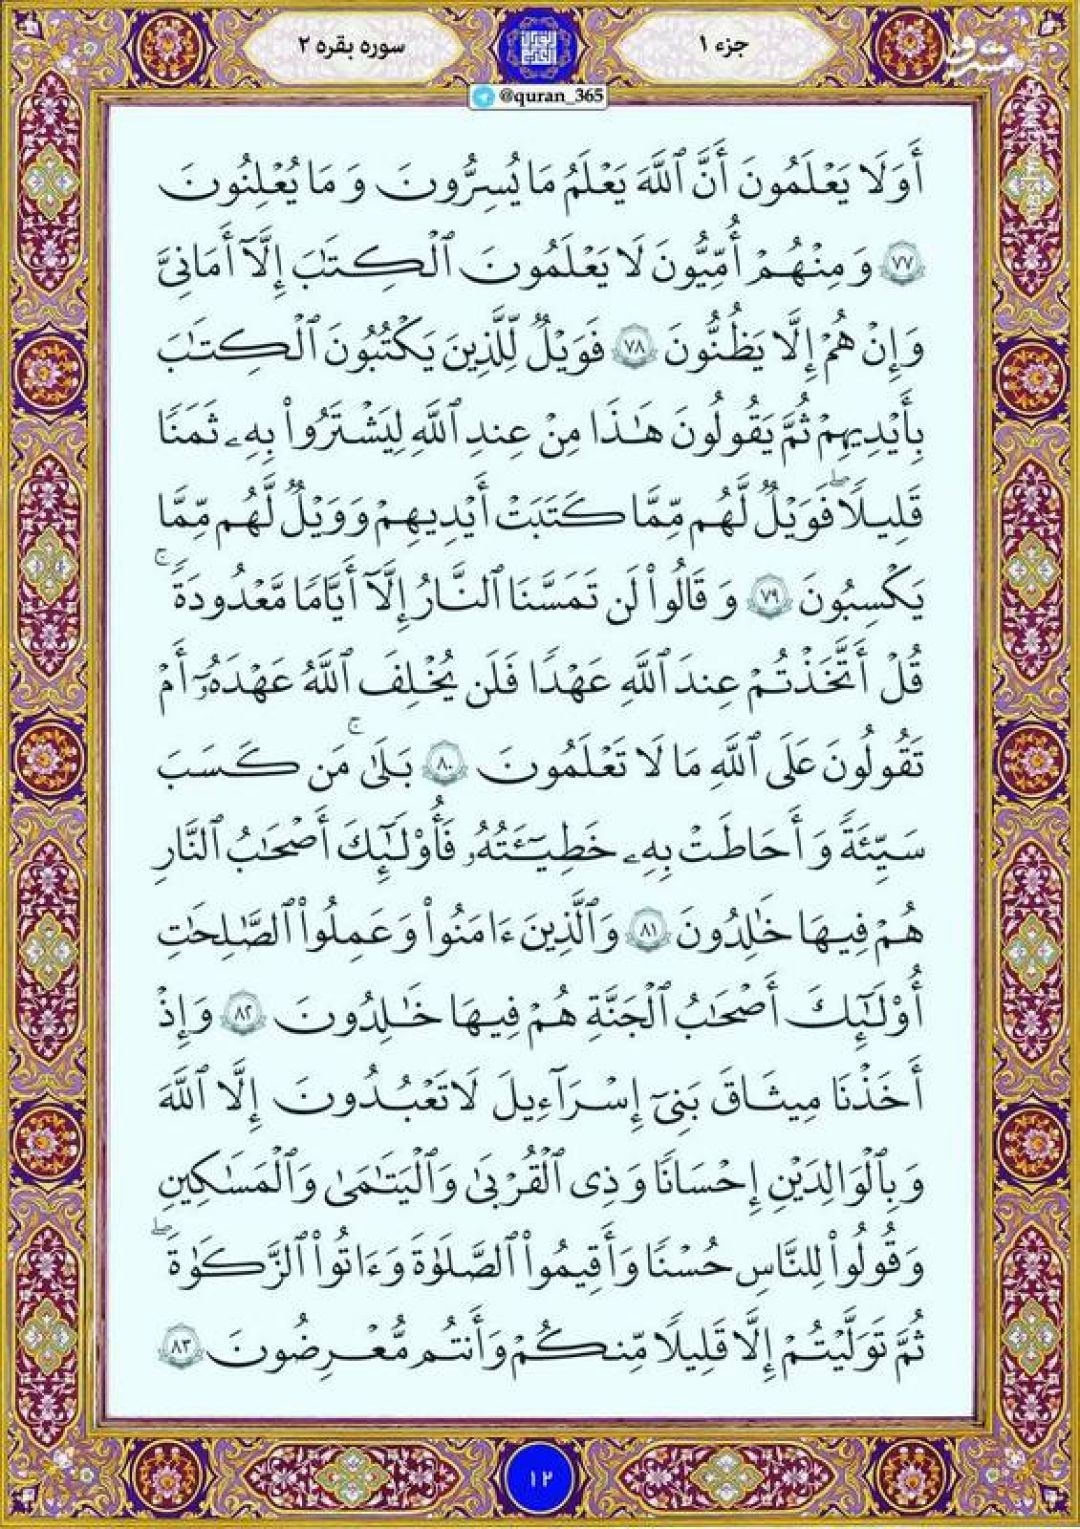 جزء ۱
سوره بقره ۲
@quran_365
أَوَلَا يَعْلَمُونَ أَنَّ ٱللَّهَ يَعْلَمُ مَا يُسِرُّونَ وَ مَا يُعْلِنُونَ
۷۷ وَ مِنْهُمْ أُمِّيُّونَ لَا يَعْلَمُونَ ٱلْكِتَٰبَ إِلَّآ أَمَانِىَّ
وَإِنْ هُمْ إِلَّا يَظُنُّونَ ۷۸ فَوَيْلٌ لِّلَّذِينَ يَكْتُبُونَ ٱلْكِتَٰبَ
بِأَيْدِيهِمْ ثُمَّ يَقُولُونَ هَٰذَا مِنْ عِندِ ٱللَّهِ لِيَشْتَرُوا۟ بِهِۦ ثَمَنًا
قَلِيلًاۖ فَوَيْلٌ لَّهُم مِّمَّا كَتَبَتْ أَيْدِيهِمْ وَ وَيْلٌ لَّهُم مِّمَّا
يَكْسِبُونَ ۷۹ وَ قَالُوا۟ لَن تَمَسَّنَا ٱلنَّارُ إِلَّآ أَيَّامًا مَّعْدُودَةًۚ
قُلْ أَتَّخَذْتُمْ عِندَ ٱللَّهِ عَهْدًا فَلَن يُخْلِفَ ٱللَّهُ عَهْدَهُۥٓۖ أَمْ
تَقُولُونَ عَلَى ٱللَّهِ مَا لَا تَعْلَمُونَ ۸۰ بَلَىٰۚ مَن كَسَبَ
سَيِّئَةً وَ أَحَاطَتْ بِهِۦ خَطِيٓـَٔتُهُۥ فَأُو۟لَٰٓئِكَ أَصْحَٰبُ ٱلنَّارِ
هُمْ فِيهَا خَٰلِدُونَ ۸۱ وَٱلَّذِينَ ءَامَنُوا۟ وَ عَمِلُوا۟ ٱلصَّٰلِحَٰتِ
أُو۟لَٰٓئِكَ أَصْحَٰبُ ٱلْجَنَّةِ هُمْ فِيهَا خَٰلِدُونَ ۸۲ وَ إِذْ
أَخَذْنَا مِيثَاقَ بَنِىٓ إِسْرَآءِيلَ لَا تَعْبُدُونَ إِلَّا ٱللَّهَ
وَ بِٱلْوَالِدَيْنِ إِحْسَانًا وَ ذِى ٱلْقُرْبَىٰ وَٱلْيَتَٰمَىٰ وَٱلْمَسَٰكِينِ
وَ قُولُوا۟ لِلنَّاسِ حُسْنًا وَ أَقِيمُوا۟ ٱلصَّلَوٰةَ وَ ءَاتُوا۟ ٱلزَّكَوٰةَۖ
ثُمَّ تَوَلَّيْتُمْ إِلَّا قَلِيلًا مِّنكُمْ وَ أَنتُم مُّعْرِضُونَ ۸۳
۱۲